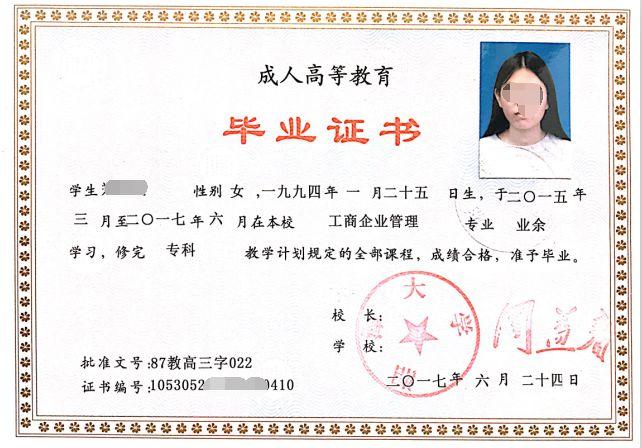 成人高等教育
毕业证书
学生 性别 女 ,一九九四年 一 月二十五 日生，于二〇一五年
三 月至二〇一七年 六 月在本校 工商企业管理 专业 业余
学习，修完 专科 教学计划规定的全部课程，成绩合格，准予毕业。
校 长：
大学
学 校：
二〇一七年 六 月 二十四日
批准文号：87教高三字022
证书编号：1053052 0410